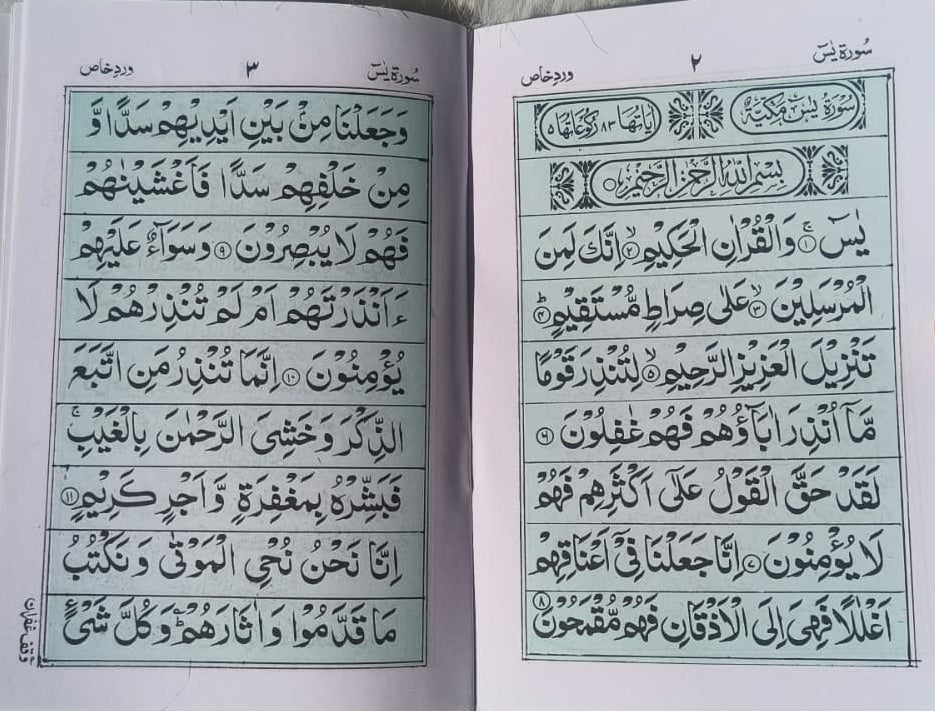 سُورَة يٰسٓ ٢ وردِ خاص
سُوْرَةُ يٰسٓ مَكِّيَّةٌ اٰيَاتُهَا ٨٣ رُكُوْعَاتُهَا ٥
بِسْمِ اللّٰهِ الرَّحْمٰنِ الرَّحِيْمِ
يٰسٓ ۚ﴿١﴾ وَالْقُرْاٰنِ الْحَكِيْمِ ۙ﴿٢﴾ اِنَّكَ لَمِنَ
الْمُرْسَلِيْنَ ۙ﴿٣﴾ عَلٰى صِرَاطٍ مُّسْتَقِيْمٍ ؕ﴿٤﴾
تَنْزِيْلَ الْعَزِيْزِ الرَّحِيْمِ ۙ﴿٥﴾ لِتُنْذِرَ قَوْمًا
مَّاۤ اُنْذِرَ اٰبَآؤُهُمْ فَهُمْ غٰفِلُوْنَ ﴿٦﴾
لَقَدْ حَقَّ الْقَوْلُ عَلٰۤى اَكْثَرِهِمْ فَهُمْ
لَا يُؤْمِنُوْنَ ﴿٧﴾ اِنَّا جَعَلْنَا فِىْۤ اَعْنَاقِهِمْ
اَغْلٰلًا فَهِىَ اِلَى الْاَذْقَانِ فَهُمْ مُّقْمَحُوْنَ ﴿٨﴾
سُورَة يٰسٓ ٣ وردِ خاص
وَجَعَلْنَا مِنْۢ بَيْنِ اَيْدِيْهِمْ سَدًّا وَّ
مِنْ خَلْفِهِمْ سَدًّا فَاَغْشَيْنٰهُمْ
فَهُمْ لَا يُبْصِرُوْنَ ﴿٩﴾ وَسَوَآءٌ عَلَيْهِمْ
ءَاَنْذَرْتَهُمْ اَمْ لَمْ تُنْذِرْهُمْ لَا
يُؤْمِنُوْنَ ﴿١٠﴾ اِنَّمَا تُنْذِرُ مَنِ اتَّبَعَ
الذِّكْرَ وَخَشِىَ الرَّحْمٰنَ بِالْغَيْبِ ۚ
فَبَشِّرْهُ بِمَغْفِرَةٍ وَّاَجْرٍ كَرِيْمٍ ﴿١١﴾
اِنَّا نَحْنُ نُحْىِ الْمَوْتٰى وَنَكْتُبُ
مَا قَدَّمُوْا وَاٰثَارَهُمْ ؕؔ وَكُلَّ شَىْءٍ
وقف غفران